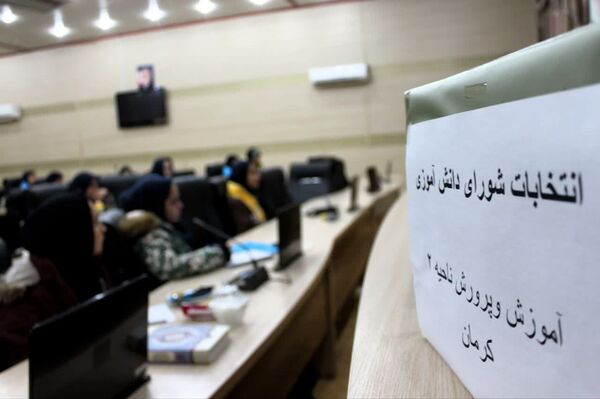 انتخابات شورای دانش آموزی
آموزش وپرورش ناحیه ۲
کرمان